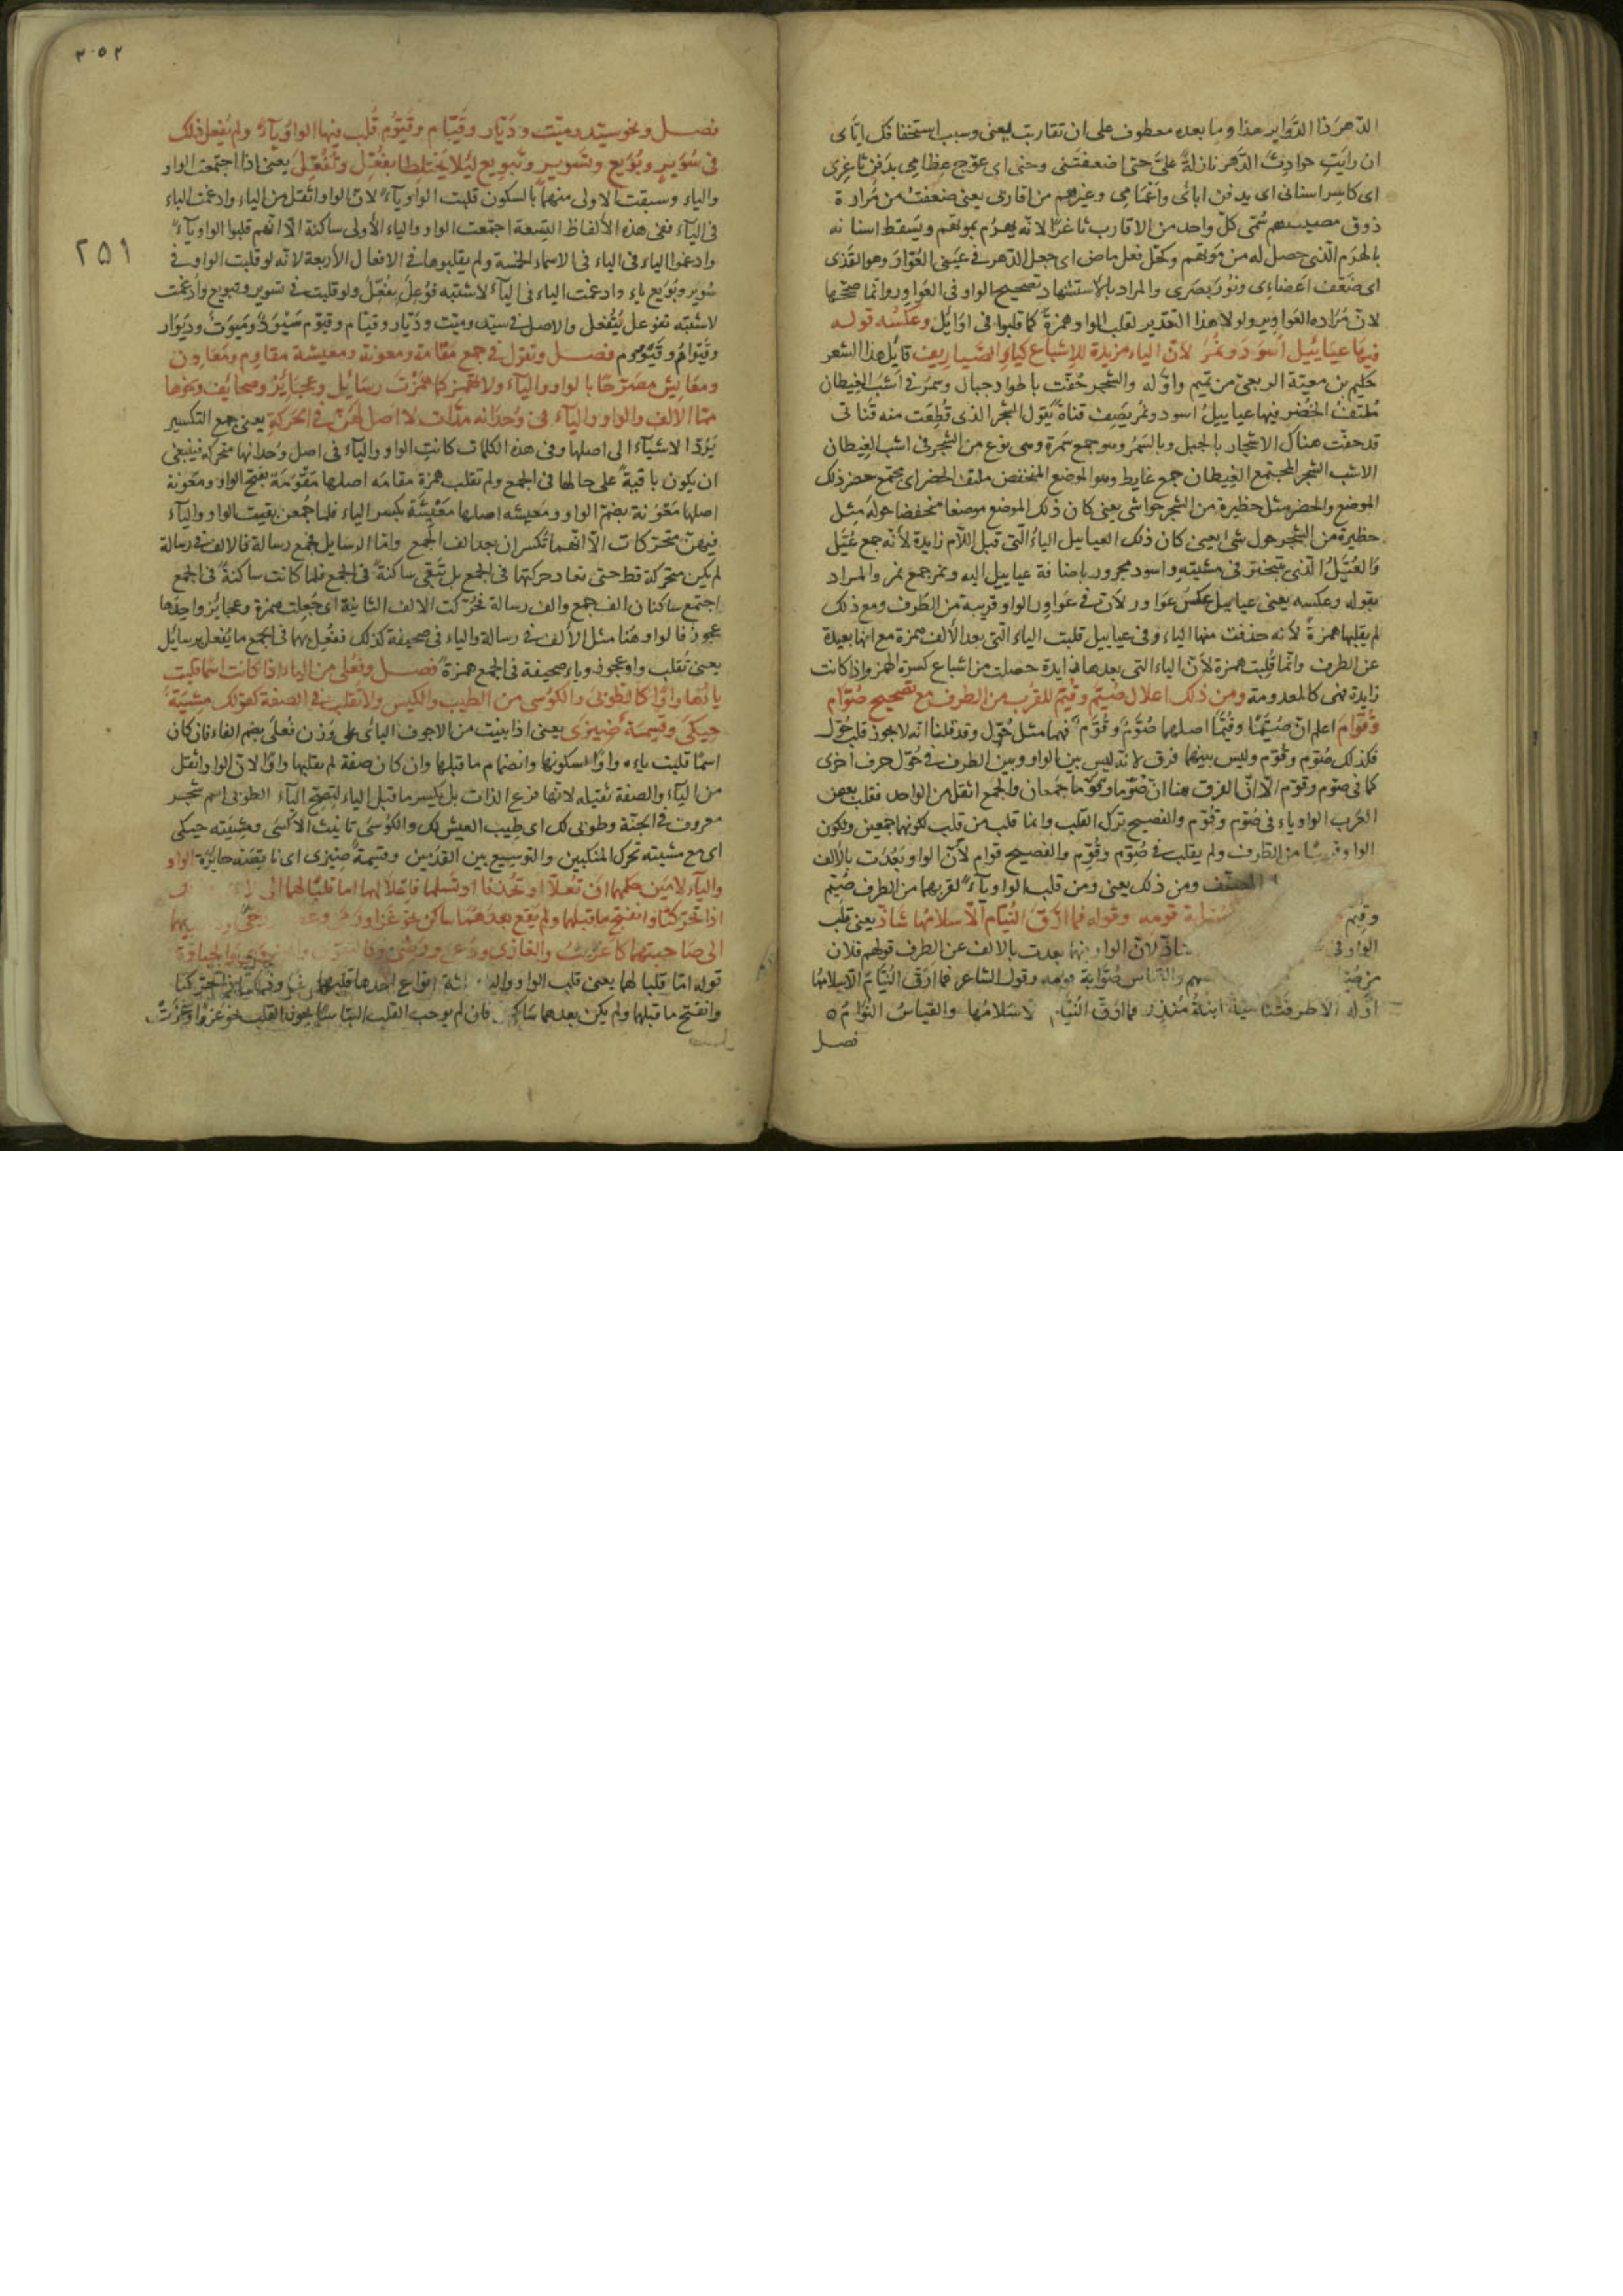 الدّهرَ ذا الدّواير هذا وما بعده معطوف على ان تقاربت يعنى وسبب استخفافك ايّاى
ان رايتِ حوادثَ الدّهر نازلةً علىَّ حتى اضعفتنى وحنى اى عوّج عِظامِى بدفن ثاغِرى
اى كاسِر اسنانى اى يدفن ابائى واعْمَامِى وغيرهم من اقاربى يعنى ضعفتُ من مُرارة
ذوق مصيبتهم سُمّى كلّ واحد من الاقارب ثاغرًا لانّه يهرُم بموتهم ويَسقط اسنانه
بالهرَم الّذى حصل له من مَوتهم وكحّل فعل ماض اى جعل الدّهر فى عينَى العُوّار وهو القَذى
اى ضَعّف اعضاءِى ونوُرَ بصَرى والمراد بالاستشهاد تصحيح الواو فى العَواوِر وانّما صحّحها
لانّ مُرَاده العَواوِير ولولا هذا التقدير لقلب الواو همزةً كما قلبوا فى اوَائل وعكسُه قوله
فيها عيَايُيل اُسُودَ ونُمُرُ لانّ الياء مزيدة للاِشباع كياءِ الصّياريف قايل هذا الشعر
حَكيم بن معيّة الربعىّ من تميم واوّله والشجر حُفّت باطواد جبال وسمُرْ فى اَشَبِ الغِيطان
مُلتفُّ الحُضُر فيها عياييلُ اسود ونمُر يَصِف قناةً يَقول الشجر الذى قُطِعَت منه قَناتى
قد حفّت هناك الاشجار بالجبل وبالسَّمُر وهو جمع سَمرة وهى نوع من الشجر فى اشب الغيطان
الاشب الشجر المجتمع الغِيطان جمع غايط وهو الموضع المنخفض ملتف الحضر اى مجتمع حضر ذلك
الموضع والحضر مثل حظيرة من الشجر حواشى يعنى كان ذلك الموضع موضعا منخفضا حوله مِثل
حظيرة من الشجر حول شئ يعنى كان ذلك العياييل الياءُ الّتى قبل اللّام زايدة لانّه جمع عُيّل
وَالعُيَّلُ الّذى يتبختر فى مشيتِه واسود مجرور باضافة عياييل اليه ونمر جمع نمر والمراد
بقوله وعكسه يعنى عياييل عكسُ عَوَاوِر لانّ فى عَوَاوِر الواو قريبة من الطَرف ومع ذلك
لم يقلبها همزةً لانّه حذفت منها الياء وفى عياييل قلبت الياء الّتى بعد الالف همزة مع انّها بعيدة
عن الطرف وانّما قُلِبت همزة لانّ الياء التى بعدها زايدة حصلت من اشباع كسرة الهمز واذا كانت
زايدة فهى كالمعدومة ومن ذلك اعلال صُيّم وقُيّم للقُرب من الطرف مع تصحيح صُوّام
وقُوّام اعلم انّ صُيّمًا وقُيّمًا اصلهما صُوّم وقُوّم فهما مثل حُوّل وقد قلنا انّه لا يجوز قلب حُوّل
فكذلك صُوّم وقوّم وليس بينهما فرق لانّه ليس بين الواو وبين الطرف فى حُوّل حرف اخرى
كما فى صوّم وقوّم الّا انّ الفرق هنا انّ صُوّمًا وقوّمًا جَمْعان والجمع اثقل من الواحد فقلب بعض
العَرب الواو ياء فى صُوّم وقُوّم والفصيح ترك القلب وانما قلب من قلب لكونهما جمعين ولكون
الواو قريبًا من الطرف ولم يقلب فى صُوّام وقُوّام والفصيح قوام لانّ الواو بَعُدَت بالالف
المصنّف ومن ذلك يعنى ومن قلب الواو ياءً لقربهما من الطرف صُيّم
وقُيّم صُيّابة قومِه وقوله فما ارّقَ النُيّام الّا سلامُها شاذّ يعنى قلب
الواو فى شاذّ لانّ الواو فيهما بعدت بالالف عن الطرف قولهم فلان
من صُيّابة والقياس صُوّابة قومه وقول الشاعر فما ارّقَ النُيّامَ الّا سلامُها
اوّله الا طرقَتنا ميّة ابنةُ مُنذِر فما ارّقَ النُيّام الّا سَلامُها والقياسُ النُوّامُ
فصل
٣٠٥٢
٢٥١
فصل ونحو سيّد وميّت وديّار وقيّام وقيّوم قُلب فيها الواو ياءً ولم يُفعل ذلك
فى سُوَيِر وبُوَيع وتَسوير وتبويع لِئلا يختلطا بفُعّل وتُفُعّل يعنى اذا اجتمعت الواو
والياء وسبقت الاولى منهما بالسكون قلبت الواو ياءً لانّ الواو اثقل من الياء وادغمت الياء
فى الياء ففى هذه الالفاظ التِسعة اجتمعت الواو والياء الأولى ساكنة الّا انّهم قلبوا الواو ياءً
وادغموا الياء فى الياء فى الاسماء الخمسة ولم يقلبوها فى الافعال الأربعة لانّه لو قلبت الواو فى
سُوير وبُويع ياء وادغمت الياء فى الياء لاشتبه فوُعِل بفُعّل ولو قلبت فى تسوير وتبويع وادغمت
لاشتبه تفوعل بتُفُعّل والاصل فى سيّد وميّت وديّار وقيّام وقيّوم سَيْوِدٌ ومَيْوِتٌ ودَيْوَار
وقَيْوَامٌ وقَيْوُومٌ فصل وتقول فى جمع مَقامة ومعونة ومعيشة مقاوِم ومَعَاوِن
ومعَايِش مصَرّحًا بالواو والياء ولا تهمز كما همَزْتَ رسَائِل وعجَائِز وصحايف ونحوها
ممّا الالف والواو والياء فى وُحدَانه مدّات لا اصل لهُنّ فى الحَركةِ يعنى جمع التكسير
يَرُدّ الاشياء الى اصلها وفى هذه الكلمات كانتِ الواو والياء فى اصل وُحدانها متحركة فينبغى
ان يكون باقيةً على حالها فى الجمع ولم تقلب همزة مقامَه اصلها مَقْوَمَة بفتح الواو ومَعُونة
اصلها مَعْوُنة بضمّ الواو ومَعيشه اصلها مَعْيِشَة بكسر الياء فلما جُمعن بقيت الواو والياء
فيهنّ متحرّكات الّا انّهما تُكسران بعد الف الجَمع وامّا الرسايل فجمع رسالة فالالف فى رسالة
لم يكن متحركة قط حتى تعاد حركتها فى الجمع بل تَبْقى ساكنةً فى الجمع فلما كانت ساكنةً فى الجمع
اجتمع ساكنان الف جمع والف رسالة فحُرّكت الالف الثانية اى جُعِلت همزة وعجائز واحِدُها
عجوز فالواو هُنا مثل الألف فى رسالة والياء فى صحيفة كذلك ففُعِل بهما فى الجمع ما يُفعل برسايل
يعنى تُقلب واو عجوز وياء صحيفة فى الجمع همزةً فصل وفُعْلى من الياء اذا كانت اسمًا قلبت
ياؤُها واوًا كالطُوبَى والكُوسى من الطيب والكيس ولا تقلب فى الصفة كقولك مِشْيَةً
حِيكَى وقِسمةٌ ضِيزَى يعنى اذا بنيت من الاجوف اليائى على وزن فُعْلى بضم الفاء فان كان
اسمًا قلبت ياءه واوًا لسكونها وانضمام ما قبلها وان كان صفة لم يقلبها واوًا لانّ الواو اثقل
من الياء والصفة ثقيله لانها فرع الذات بل يكسر ما قبل الياء لتصحّ الياء الطوبى اسم شجر
معروف فى الجنّة وطوبى لك اى طِيب العيش لك والكُوسَى تانيث الاكْيَس ومِشيَته حيكى
اى مع مشيته تحرك المنكبين والتوسيع بين القدمين وقسمةٌ ضِيزى اى ناقِصة جائزة الواو
والياء لامَين حكمهما ان تُعلّا او تُحذفا او تسلما فاعلالهما اما قلبًا لهما الى
اذا تحرّكتا وانفتح ما قبلهما ولم يقع بعدهما ساكن نحو غزا ورمى
الى صَاحبتِهما كاَغزيتُ والغازى ودُعى ورَضِىَ
قوله امّا قلبا لهما يعنى قلب الواو والياء انواع احدها قلبهما الفا وذلك اذا تحرّكتا
وانفتح ما قبلهما ولم يكن بعدهما ساكن فان لم يوجب القلب نحو غزوا وغَزَتْ